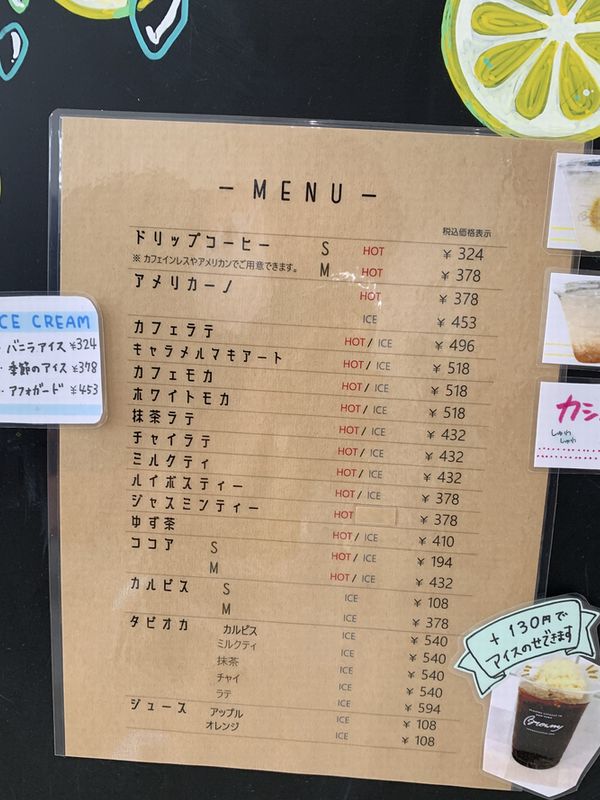 - MENU -
税込価格表示
ドリップコーヒー S HOT ¥ 324
※ カフェインレスやアメリカンでご用意できます。 M HOT ¥ 378
アメリカーノ HOT ¥ 378
ICE ¥ 453
カフェラテ HOT / ICE ¥ 496
キャラメルマキアート HOT / ICE ¥ 518
カフェモカ HOT / ICE ¥ 518
ホワイトモカ HOT / ICE ¥ 518
抹茶ラテ HOT / ICE ¥ 432
チャイラテ HOT / ICE ¥ 432
ミルクティ HOT / ICE ¥ 432
ルイボスティー HOT / ICE ¥ 378
ジャスミンティー HOT ¥ 378
ゆず茶 HOT / ICE ¥ 410
ココア S HOT / ICE ¥ 194
M HOT / ICE ¥ 432
カルピス S ICE ¥ 108
M ICE ¥ 378
タピオカ カルピス ICE ¥ 540
ミルクティ ICE ¥ 540
抹茶 ICE ¥ 540
チャイ ICE ¥ 540
ラテ ICE ¥ 594
ジュース アップル ICE ¥ 108
オレンジ ICE ¥ 108
CE CREAM
・バニラアイス ¥324
・季節のアイス ¥378
・アフォガード ¥453
カシ
しゅわ
しゅわ
+130円で
アイスのせできます
Browny